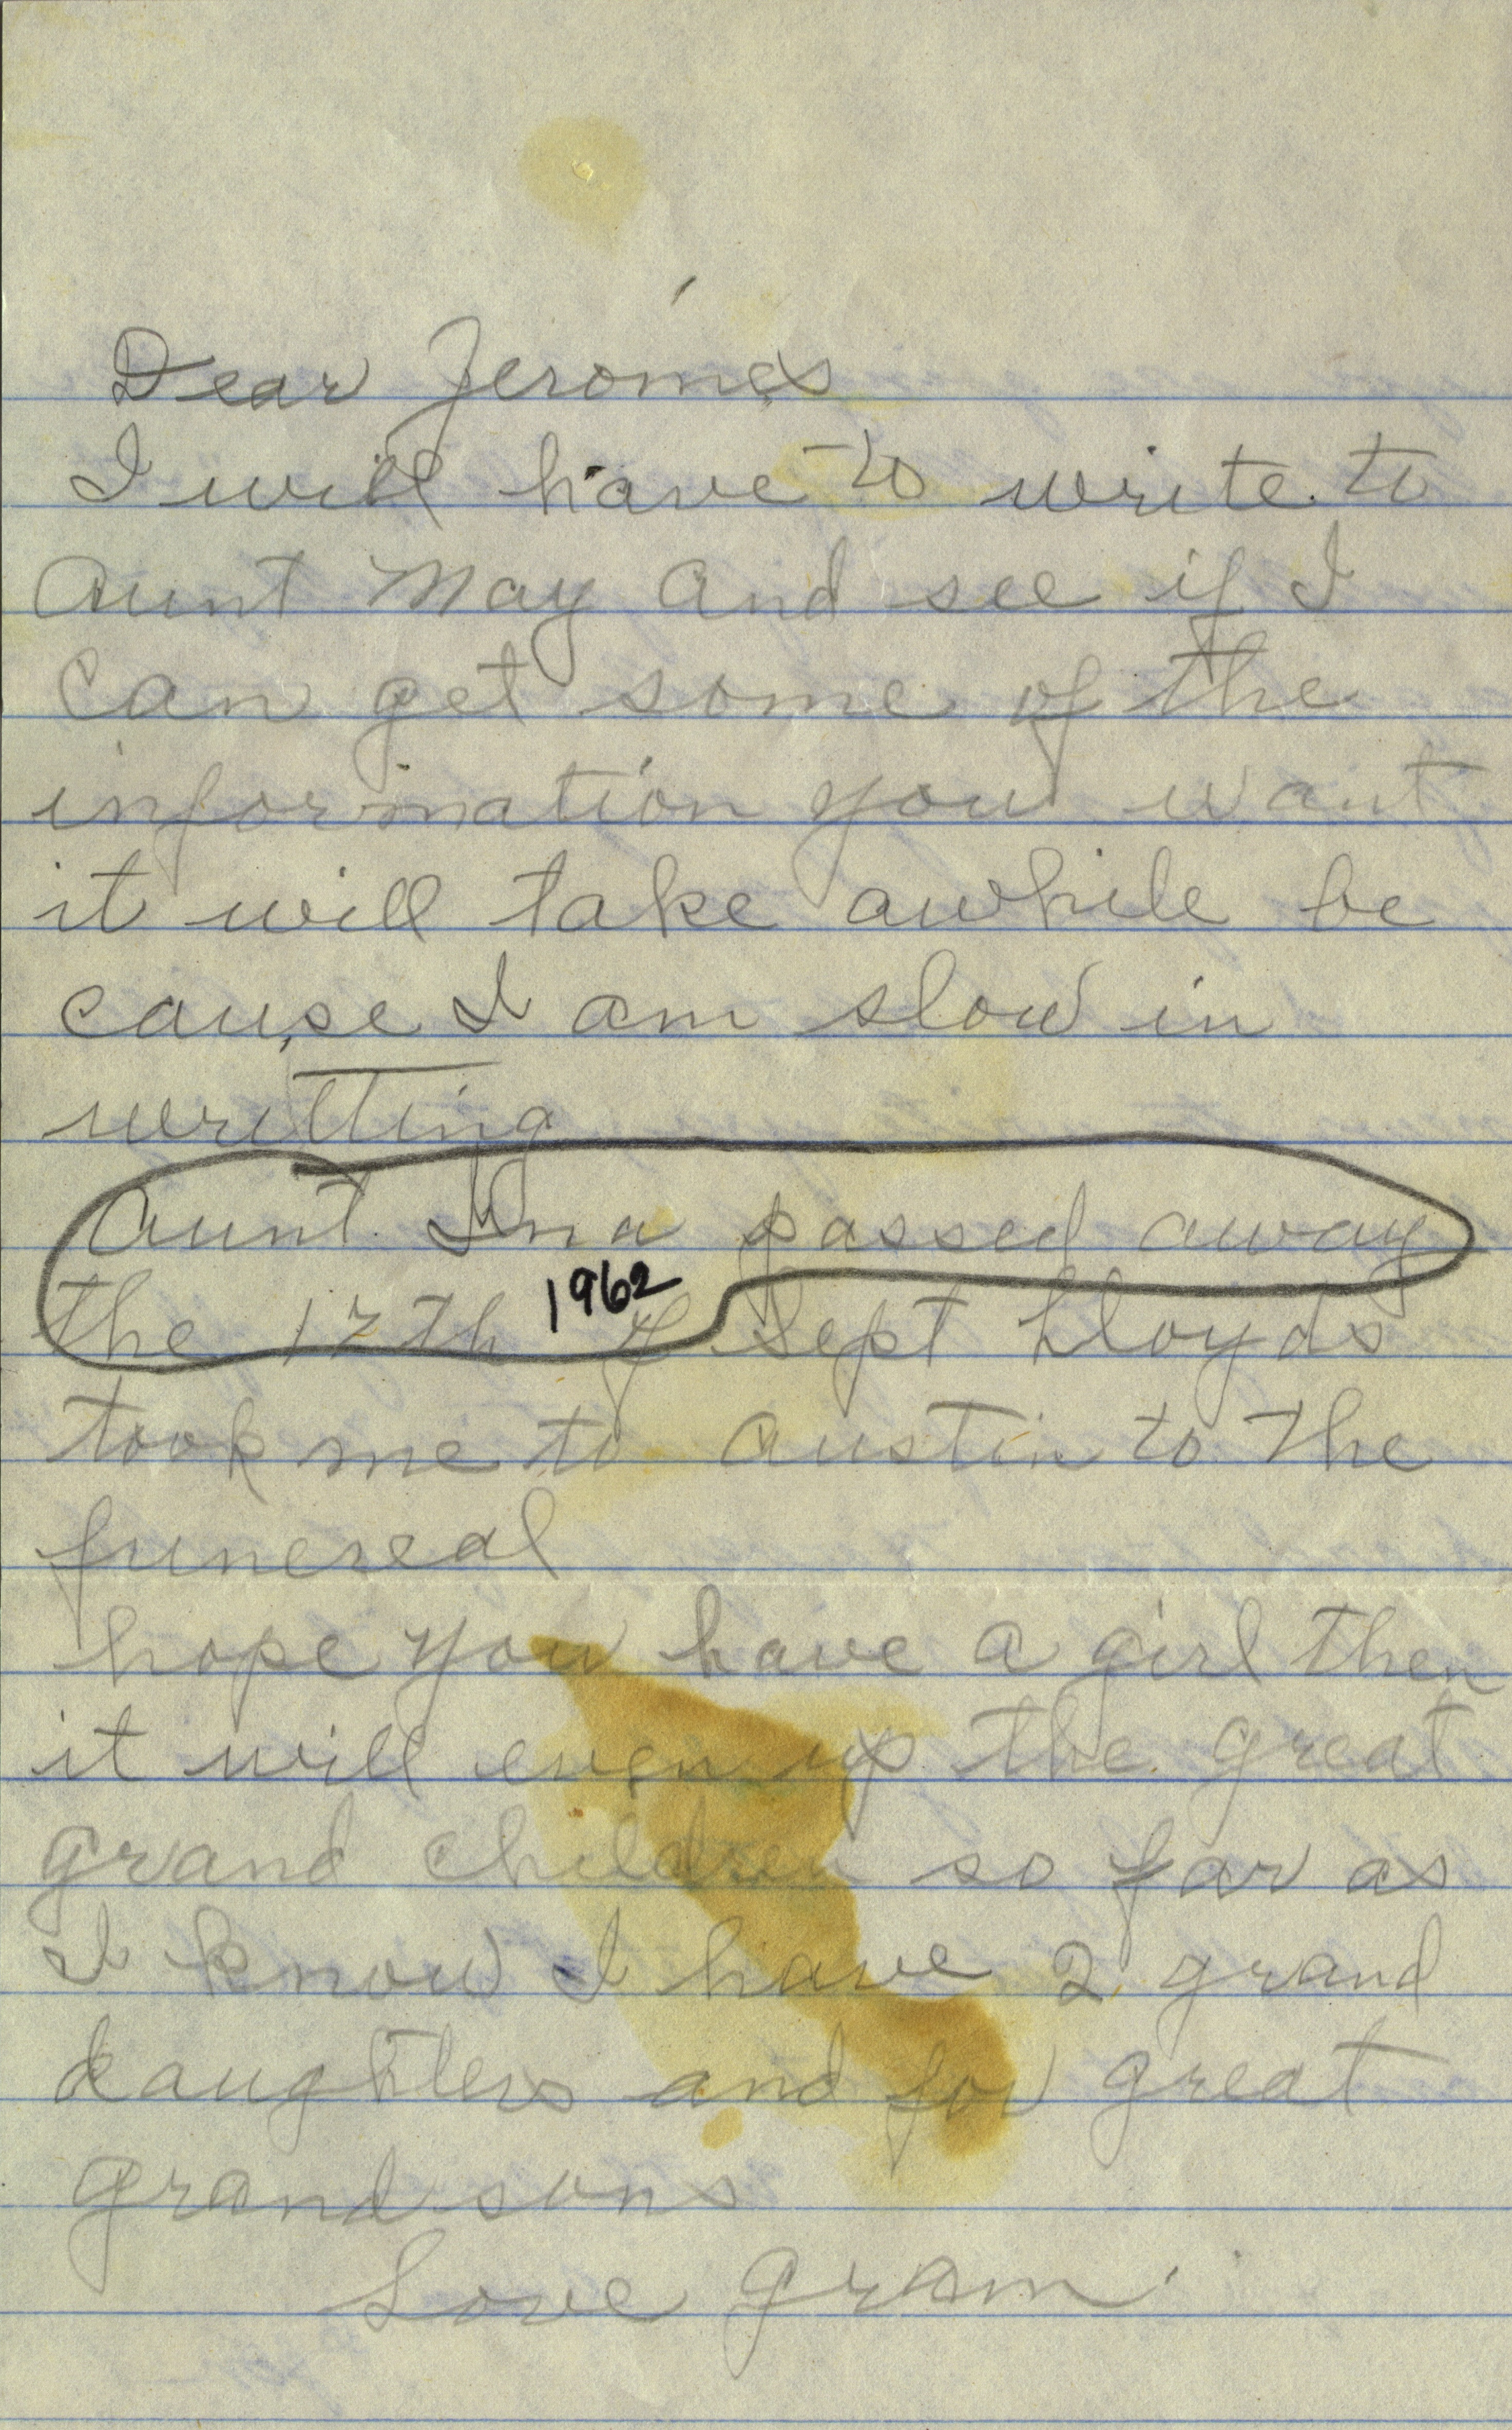 Dear Jeromes
I will have to write to
Aunt May and see if I
can get some of the
information you want
it will take awhile be
cause I am slow in
writting
Aunt Ina passed away
1962
the 17th of Sept Lloyds
took me to Austin to the
funereal
hope you have a girl then
it will even up the great
grand children so far as
I know I have 2 grand
daughters and for great
grand sons
Love Gram